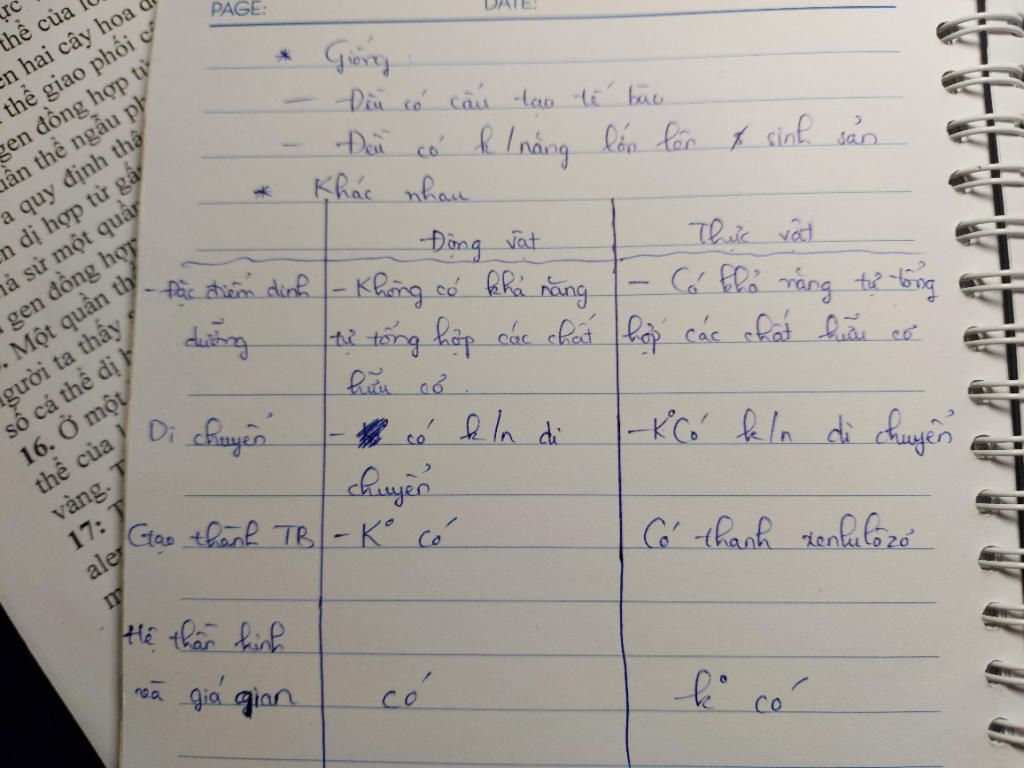 ực
thể của loà
en hai cây hoa đ
thể giao phối c
gen đồng hợp tử
uần thể ngẫu ph
a quy định thâ
n dị hợp tử gấ
ả sử một quần
gen đồng hợp
. Một quần thể
người ta thấy
số cá thể dị h
16. Ở một
thể của l
vàng.
17: T
aler
m
PAGE: DATE:
* Giống
- Đều có cấu tạo tế bào
- Đều có k/năng lớn lên sinh sản
* Khác nhau
Động vật Thực vật
- Đặc điểm dinh - Không có khả năng - Có khả năng tự tổng
dưỡng tự tổng hợp các chất hợp các chất hữu cơ
hữu cơ.
Di chuyển - có k/n di - K° Có k/n di chuyển
chuyển
Ctạo thành TB - K° có Có thanh xenlulôzơ
Hệ thần kinh
và giá gian có k° có